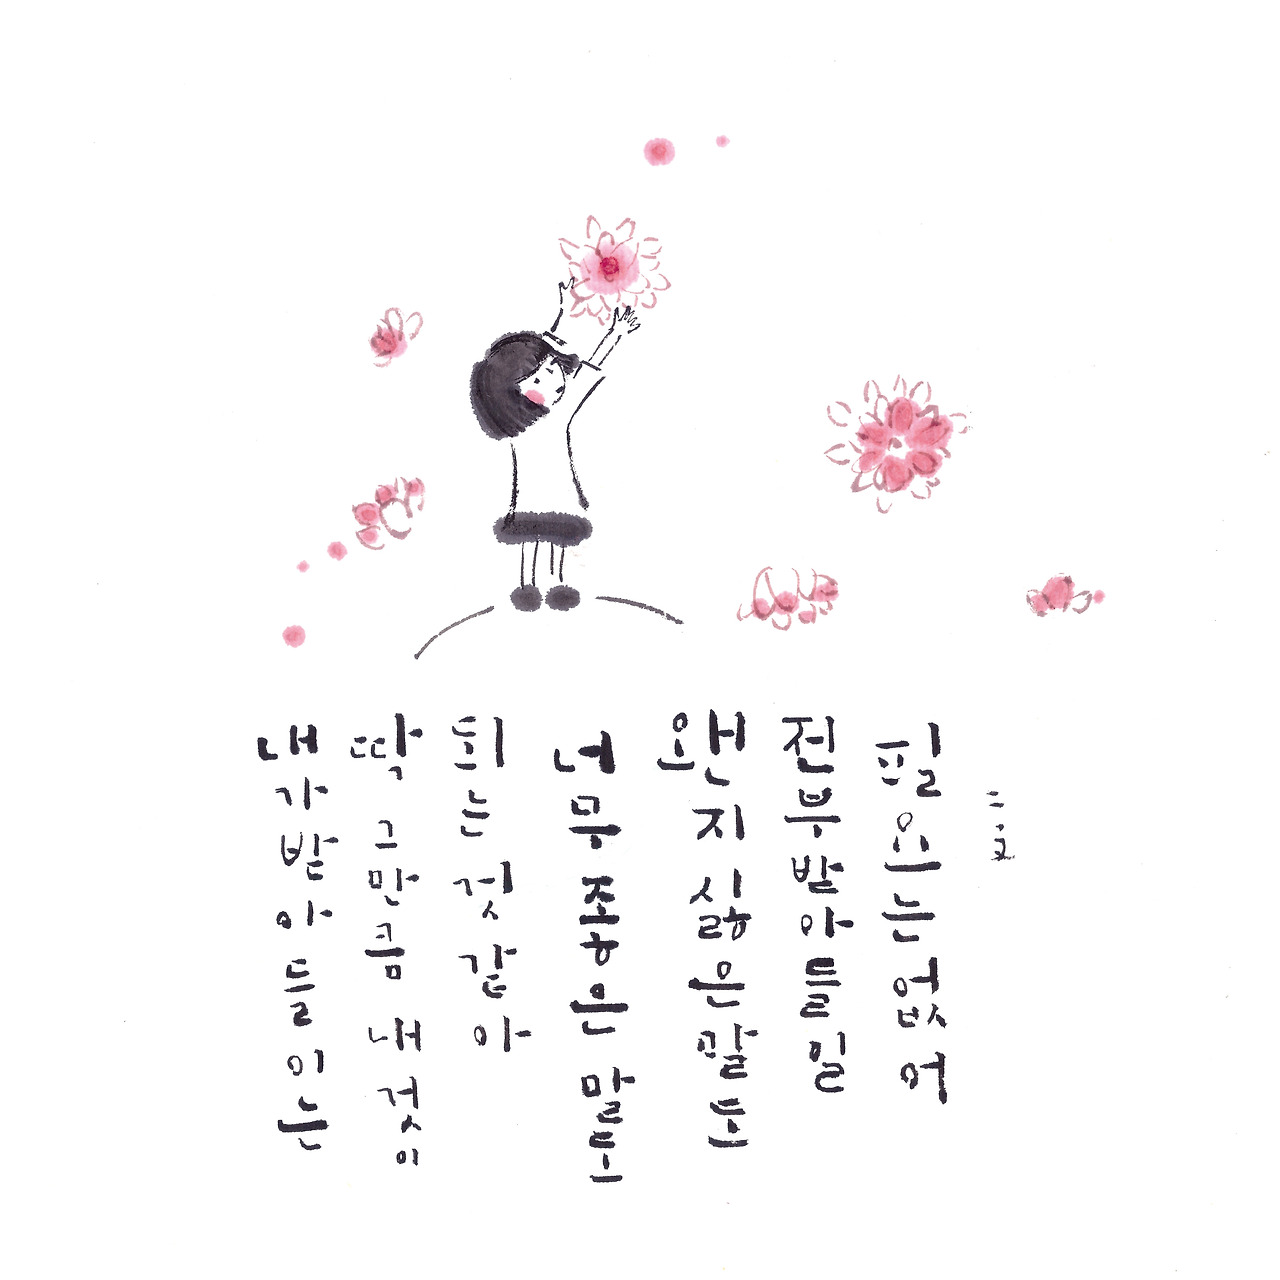 내가 받아들이는
딱 그만큼 내 것이
되는 것 같아
너무 좋은 말도
왠지 싫은 말도
전부 받아들일
필요는 없어